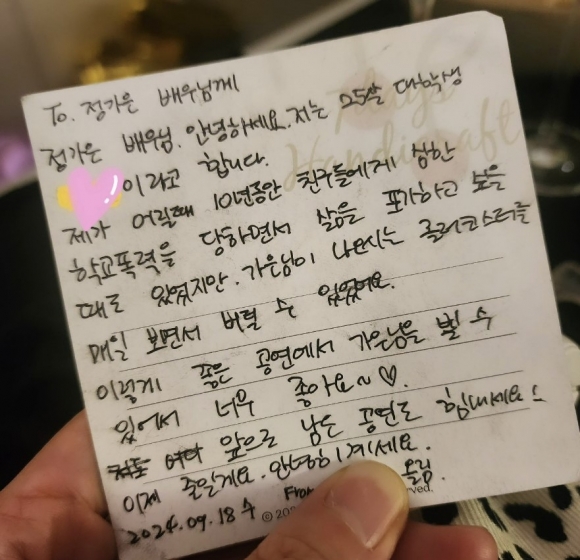 To. 정가은 배우님께
정가은 배우님. 안녕하세요. 저는 25살 대학생
이라고 합니다.
제가 어릴때 10년동안 친구들에게 심한
학교폭력을 당하면서 삶을 포기하고 싶을
때도 있었지만. 가은님이 나오시는 롤러코스터를
매일 보면서 버틸 수 있었어요.
이렇게 좋은 공연에서 가은님을 뵐 수
있어서 너무 좋아요~♡.
앞으로 남은 공연도 힘내세요
이제 줄일게요. 안녕히계세요.
2024.09.18 수
From
올림
Handicraft